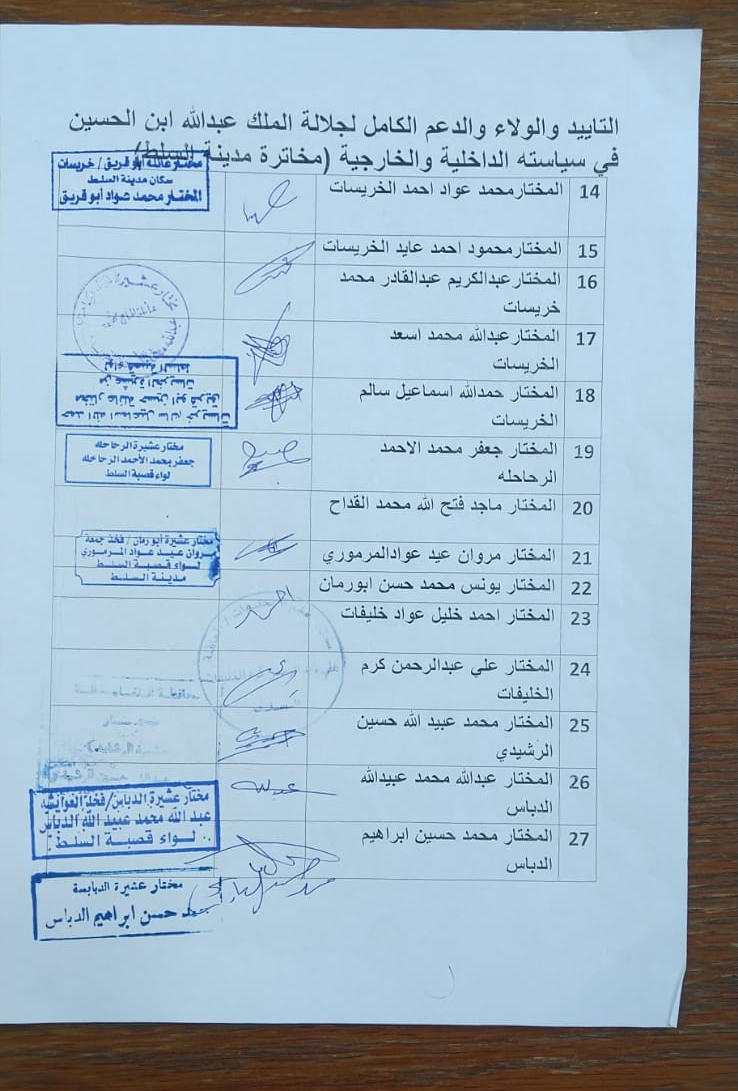 التاييد والولاء والدعم الكامل لجلالة الملك عبدالله ابن الحسين
في سياسته الداخلية والخارجية (مخاترة مدينة السلط)
مختار عائلة ابو قريق / خريسات
سكان مدينة السلط
المختار محمد عواد أبو قريق
14 المختارمحمد عواد احمد الخريسات
15 المختارمحمود احمد عايد الخريسات
16 المختارعبدالكريم عبدالقادر محمد
خريسات
17 المختارعبدالله محمد اسعد
الخريسات
18 المختار حمدالله اسماعيل سالم
الخريسات
حمد الله اسماعيل سالم خريسات
مختار عائلة ابو حسين قريق
من عشيرة الخريسات
لواء قصبة السلط
19 المختار جعفر محمد الاحمد
الرحاحله
مختار عشيرة الرحاحله
جعفر محمد الأحمد الرحاحله
لواء قصبة السلط
20 المختار ماجد فتح الله محمد القداح
21 المختار مروان عيد عوادالمرموري
مختار عشيرة أبو رمان / فخذ جمعة
مروان عيد عواد المرموري
لواء قصبة السلط
مدينة السلط
22 المختار يونس محمد حسن ابورمان
23 المختار احمد خليل عواد خليفات
24 المختار علي عبدالرحمن كرم
الخليفات
25 المختار محمد عبيد الله حسين
الرشيدي
26 المختار عبدالله محمد عبيدالله
الدباس
مختار عشيرة الدباس/ فخذ الفوايشه
عبد الله محمد عبيد الله الدباس
لواء قصبة السلط
27 المختار محمد حسين ابراهيم
الدباس
مختار عشيرة الدبابسة
حسن ابراهيم الدباس